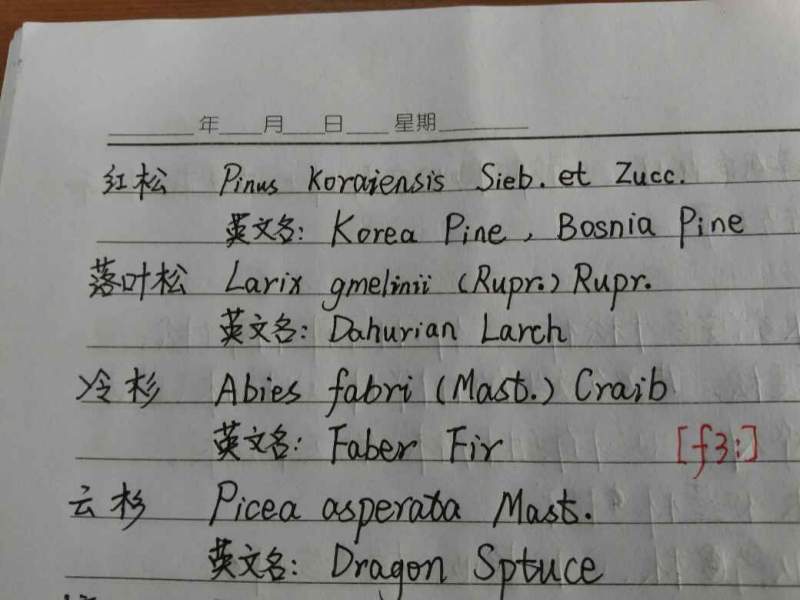 年 月 日 星期
红松 Pinus Koraiensis Sieb. et Zucc.
英文名: Korea Pine, Bosnia Pine
落叶松 Larix gmelinii (Rupr.) Rupr.
英文名: Dahurian Larch
冷杉 Abies fabri (Mast.) Craib
英文名: Faber Fir [f3:]
云杉 Picea asperata Mast.
英文名: Dragon Sptuce